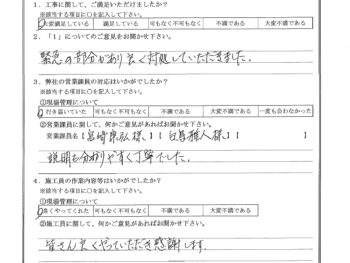 1. 工事に関して、ご満足いただけましたか?
※該当する項目に〇を記入して下さい。
大変満足している 満足している 可もなく不可もなく 不満である 大変不満である
2. 「1」についてのご意見をお聞かせ下さい。
緊急の部分があり良く対処していただきました。
3. 弊社の営業課員の対応はいかがでしたか?
※該当する項目に〇を記入して下さい。
①現場管理について
行き届いていた 可もなく不可もなく 不満である 大変不満である 一度も会わなかった
②営業課員に関して、何かご意見があればお聞かせ下さい。
営業課員名【宮崎 様、】【 雅人 様、】【 】
説明も分かりやすく丁寧でした。
4. 施工員の作業内容等はいかがでしたか?
※該当する項目に〇を記入して下さい。
①現場管理について
良くやってくれた 可もなく不可もなく 不満である 大変不満である
②施工員に関して、何かご意見があればお聞かせ下さい。
皆さん良くやっていただき感謝します。